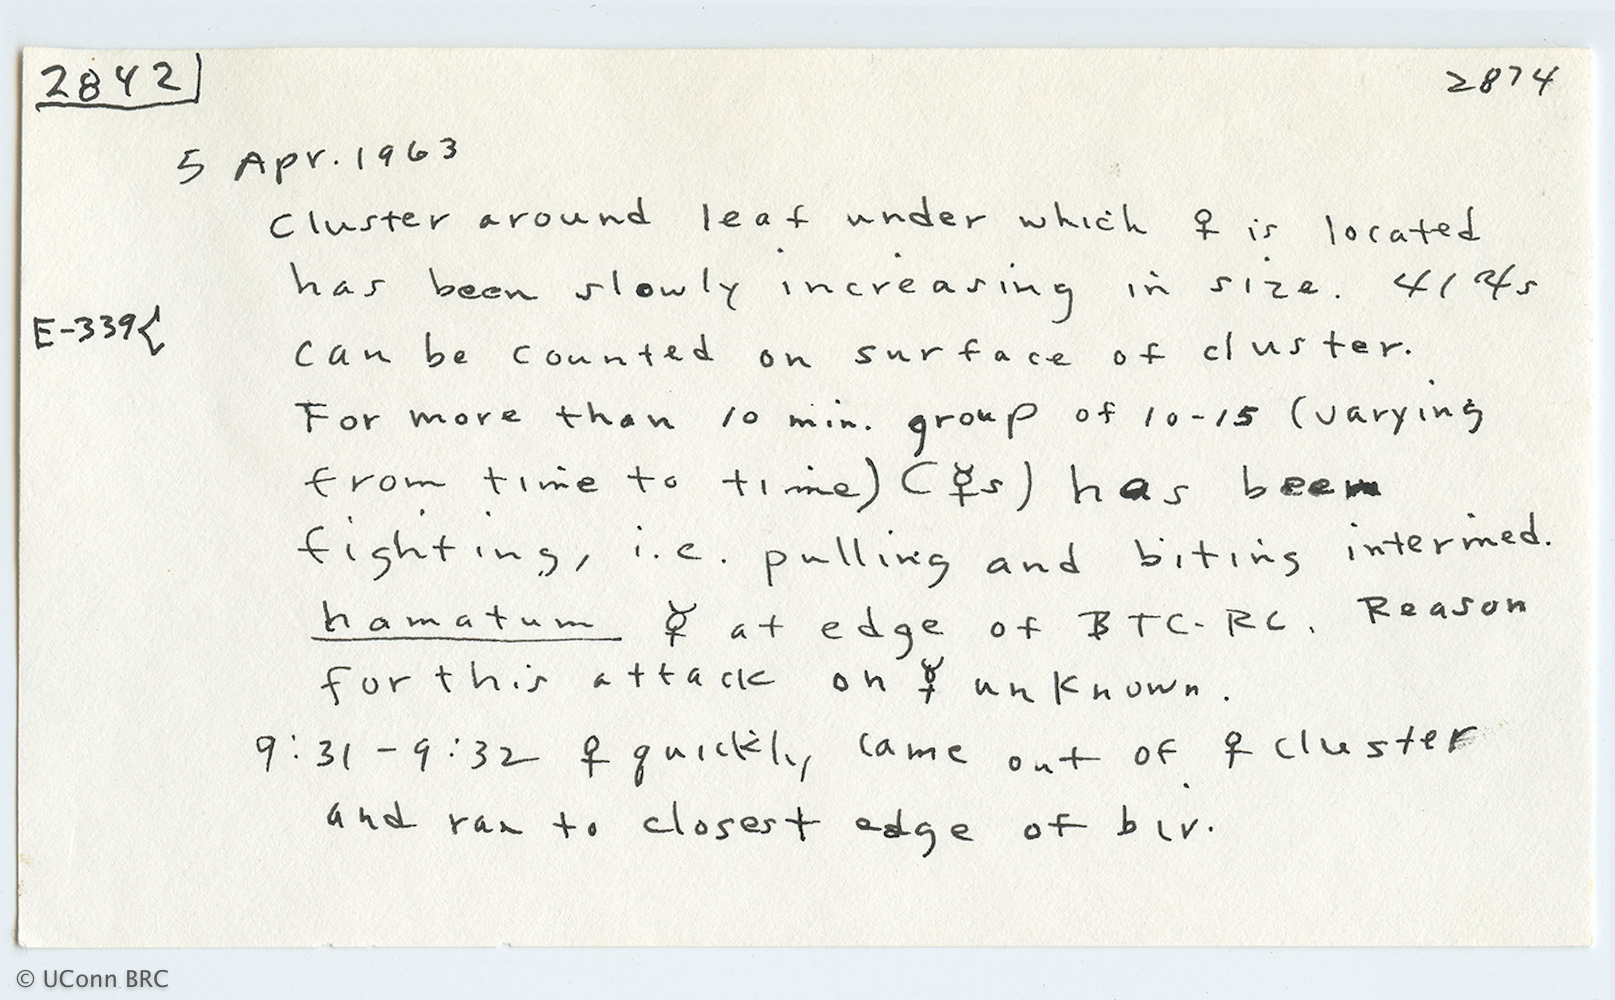 2842
2874
5 Apr. 1963
Cluster around leaf under which ♀ is located
has been slowly increasing in size. 41 ☿s
E-339{
can be counted on surface of cluster.
For more than 10 min. group of 10-15 (varying
from time to time) (☿s) has been
fighting, i.e. pulling and biting intermed.
hamatum ☿ at edge of BTC-RC. Reason
for this attack on ☿ unknown.
9:31-9:32 ♀ quickly came out of ♀ cluster
and ran to closest edge of biv.
© UConn BRC